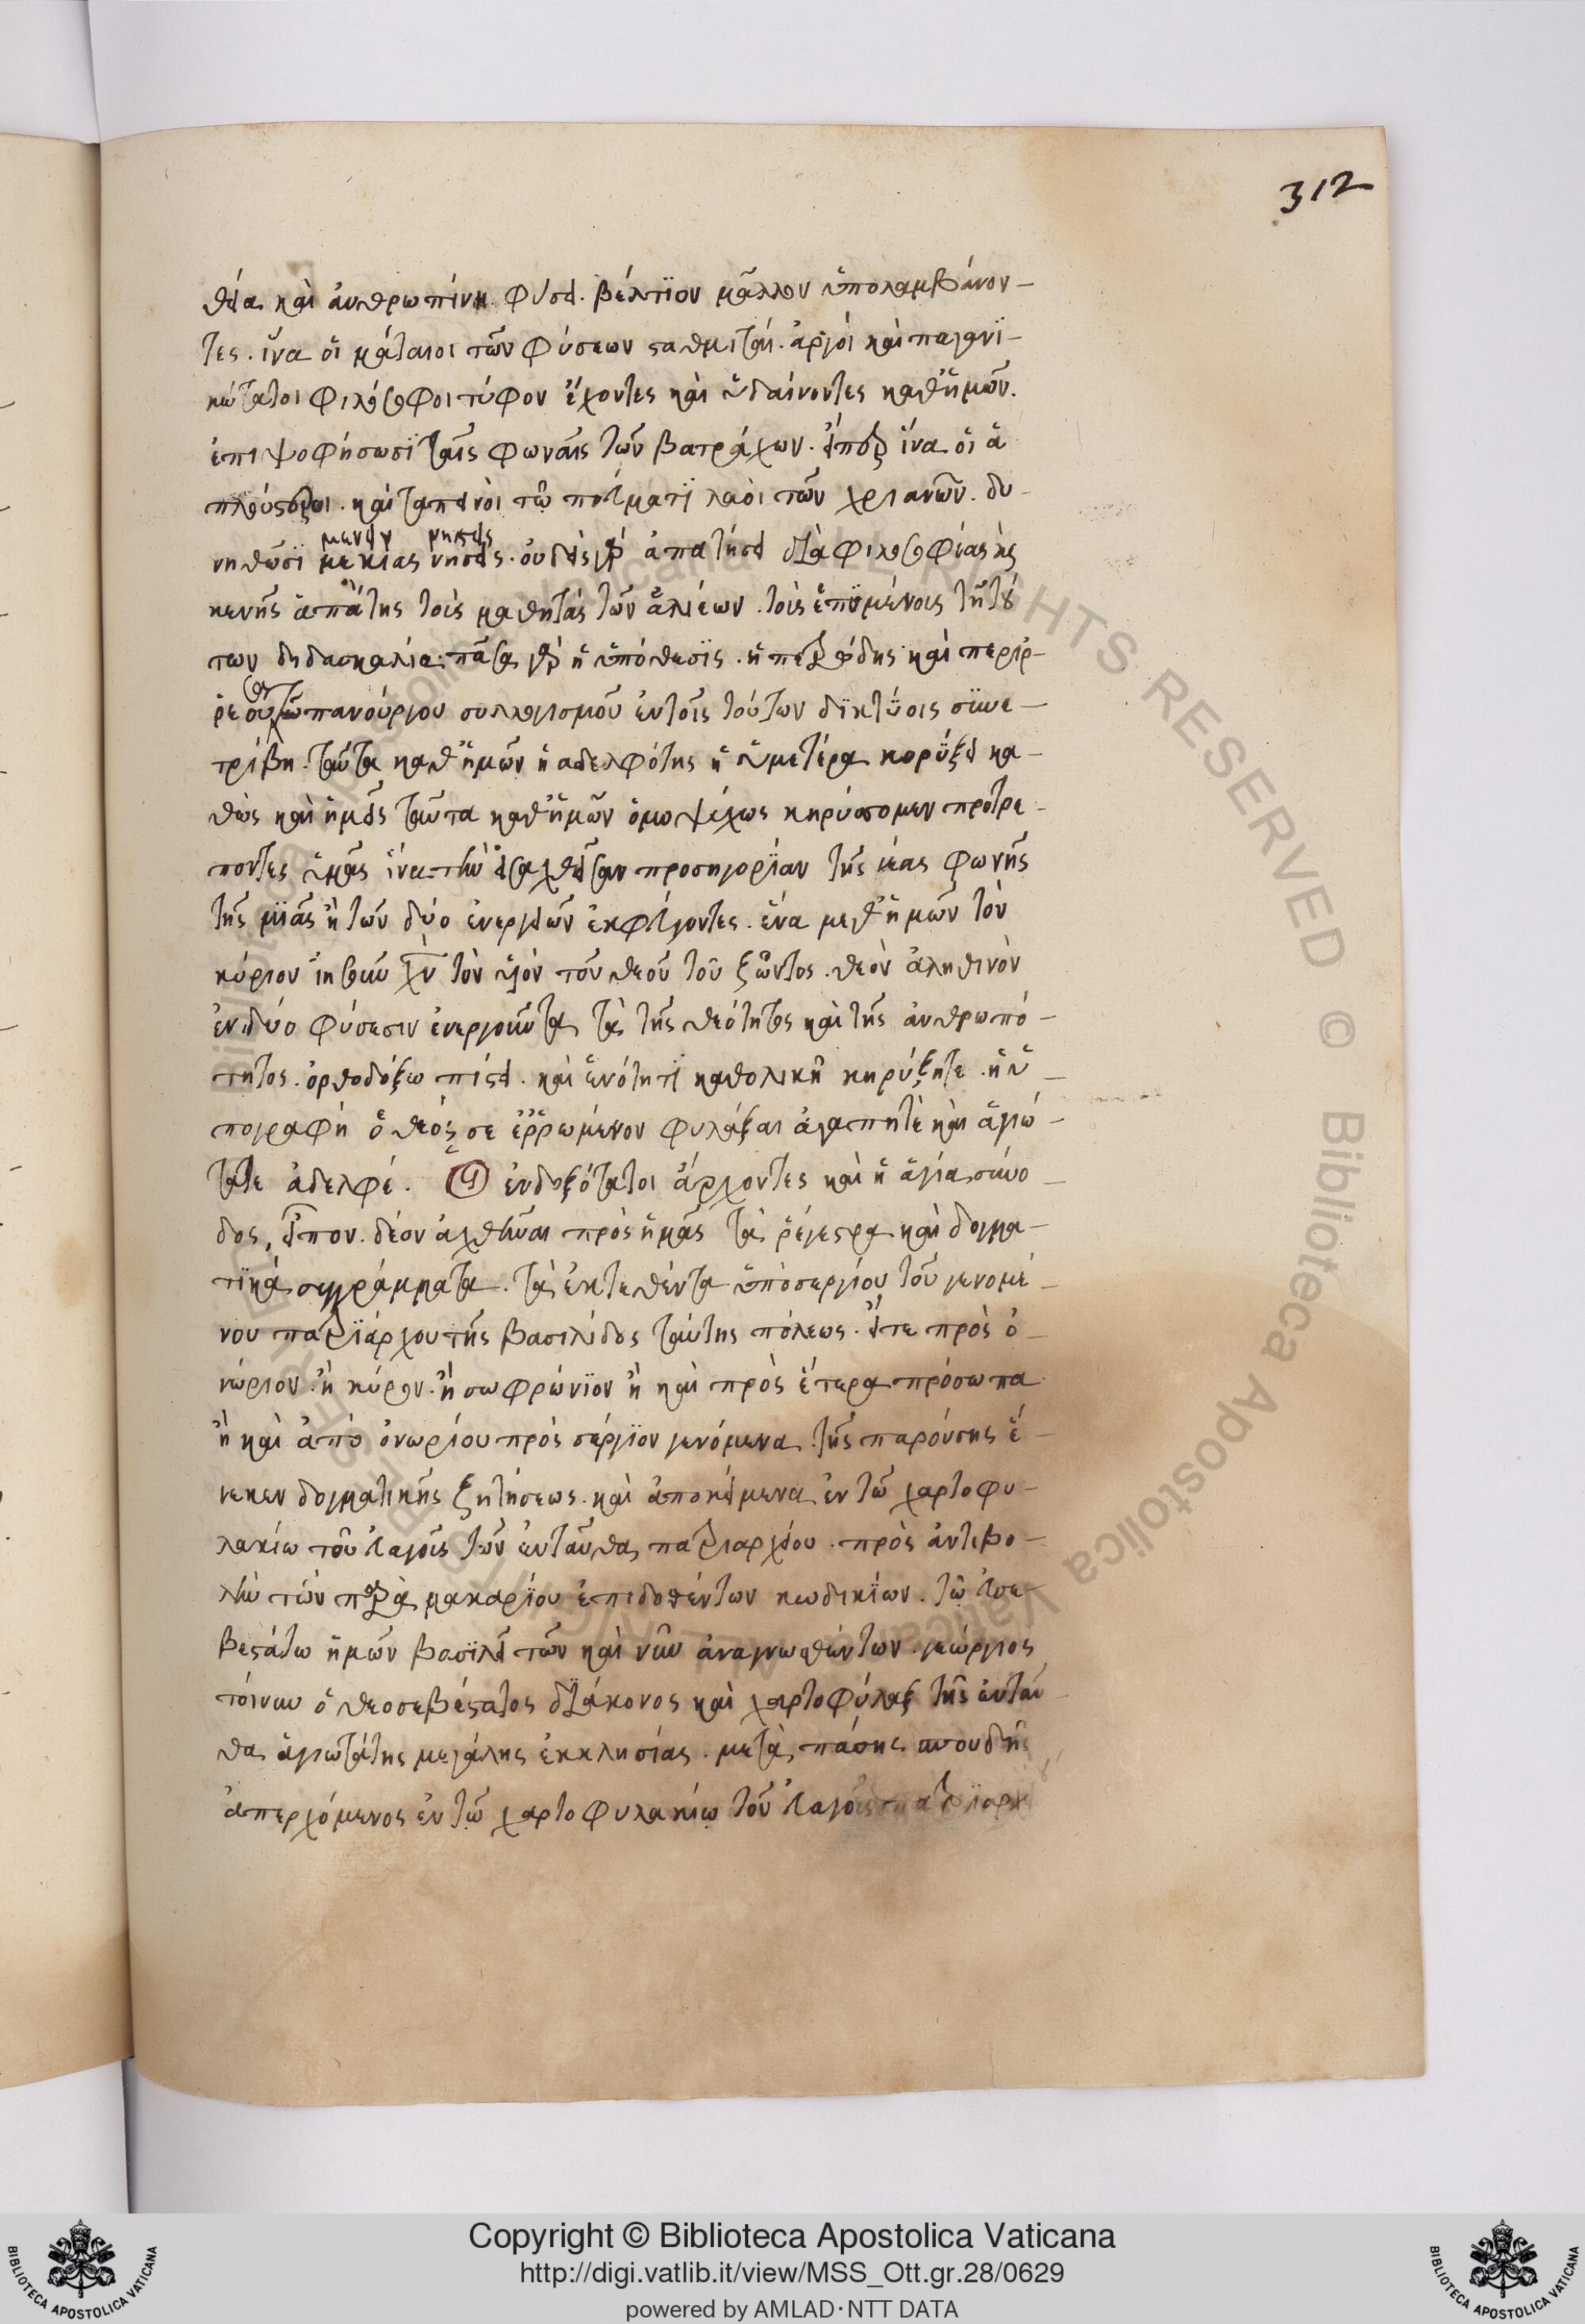 312
θεία καὶ ἀνθρωπίνη φύσει. βέλτϊον μᾶλλον ὑπολαμβάνον-
τες. ἵνα οἱ μάταιοι τῶν φύσεων σταθμισταί. ἀργοὶ καὶ παγανϊ-
κώτατοι φιλόσοφοι τύφον ἔχοντες καὶ οἰδαίνοντες καθ ἡμῶν.
ἐπιψοφήσωσϊ ταῖς φωναῖς τῶν βατράχων. ἵνα οἱ ἁ
πλούστεροι. καὶ ταπεινοὶ τῶ πνεύματϊ λαοὶ τῶν χριανῶν. δυ-
νηθῶσϊ
κενῆς ἀπάτης τοῖς μαθητὰς τῶν ἁλιέων. τοῖς ἑπομένοις τῆ τού
των διδασκαλία. πᾶσα γὰρ ἡ ὑπόθεσϊς. ἡ πετρώδης καὶ περιρ-
ρέουσα τῶ πανούργου συλλογισμοῦ ἐν τοῖς τούτων δϊκτύοις συνε-
τρίβη. ταῦτα καθ ἡμῶν ἡ αδελφότης ἡ ὑμετέρα κορϋξει κα-
θὼς καὶ ἡμεῖς ταῦτα καθ ἡμῶν ὁμοψύχως κηρύσσομεν προτρε-
ποντες ὑμᾶς ἵνα τὴν εἰσαχθεῖσαν προσηγορϊαν τῆς νέας φωνῆς
τῆς μϊᾶς ἢ τῶν δύο ἐνεργειῶν ἐκφεύγοντες. ἕνα μεθ ἡμῶν τὸν
κύριον ἰησοῦν χν τὸν υἱὸν τοῦ θεοῦ τοῦ ζῶντος. θεὸν ἀληθινὸν
ἐν δύο φύσεσιν ἐνεργοῦντα τὰ τῆς θεότητος καὶ τῆς ἀνθρωπό-
τητος. ὀρθοδόξω πίστει. καὶ ἑνότητϊ καθολικῆ κηρύξητε. ἡ ὑ-
πογραφὴ ὁ θεός σε ἐῤῥωμένον φυλάξαι ἀγαπητὲ καὶ ἁγιώ-
τατε ἀδελφέ. οἱ ἐνδοξότατοι ἄρχοντες καὶ ἡ ἁγία σύνο-
δος, εἶπον. δέον ἀχθῆναι πρὸς ἡμᾶς τὰ ῥέγεστρα καὶ δογμα-
τϊκὰ συγγράμματα. τὰ ἐκτεθέντα ὑπὸ σεργίου τοῦ γενομέ-
νου πατρϊάρχου τῆς βασιλίδος ταύτης πόλεως. εἴτε πρὸς ὁ-
νώριον. ἢ κύρον. ἢ σωφρώνϊον ἢ καὶ πρὸς ἕτερα πρόσωπα
ἢ καὶ ἀπὸ ὀνωρίου πρὸς σέργϊον γενόμενα. τῆς παρούσης ἕ-
νεκεν δογματικῆς ζητήσεως. καὶ ἀποκείμενα ἐν τῶ χαρτοφυ-
λακίω τοῦ εὐαγοῦς τῶν ἐνταῦθα πατριαρχείου. πρὸς ἀντιβο-
λὴν τῶν παρὰ μακαρϊου ἐπιδοθέντων κωδικϊων. τῶ εὐσε-
βεστάτω ἡμῶν βασϊλεῖ τῶν καὶ νῦν ἀναγνωσθέντων. γεώργιος
τοίνυν ὁ θεοσεβέστατος δϊάκονος καὶ χαρτοφύλαξ τῆς ἐνταύ-
θα ἁγιωτάτης μεγάλης ἐκκλησίας. μετὰ πάσης σπουδῆς
ἀπερχόμενος ἐν τῶ χαρτοφυλακίω τοῦ εὐαγοῦς πατρϊαρχείου
Copyright © Biblioteca Apostolica Vaticana
http://digi.vatlib.it/view/MSS_Ott.gr.28/0629
powered by AMLAD·NTT DATA